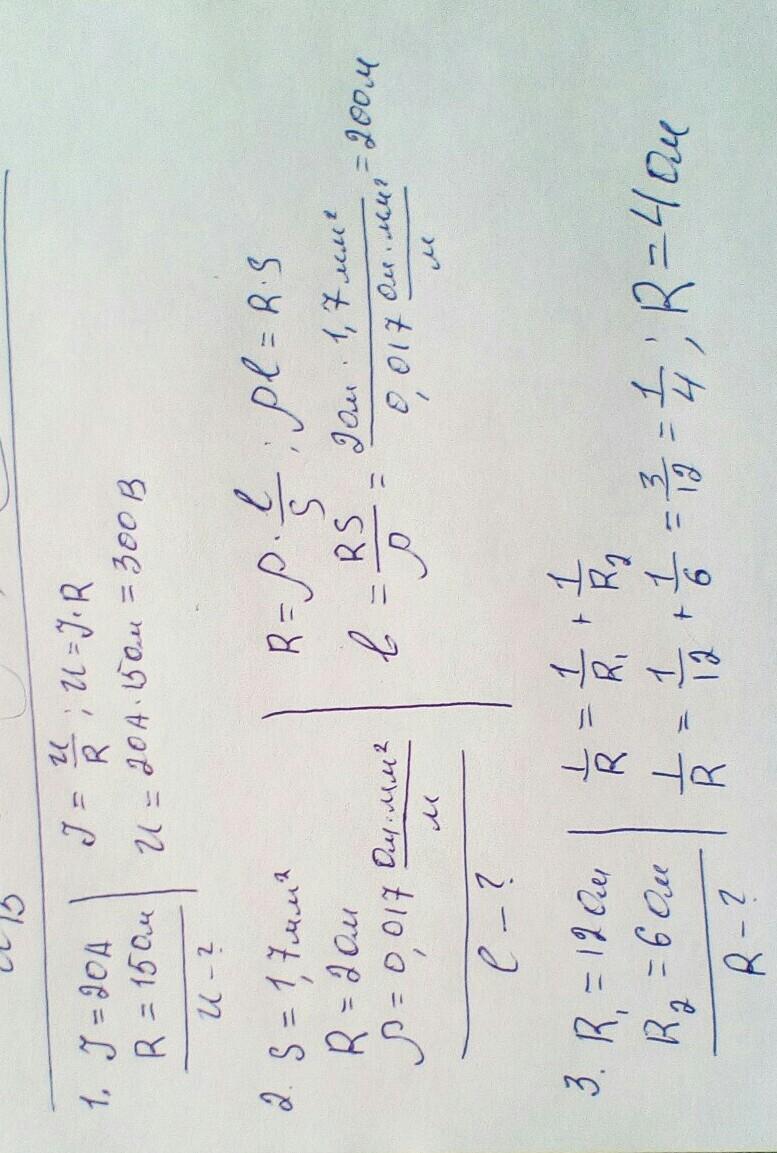 1. J = 20A
R = 15 Ом
U - ?
J = U/R ; U = J·R
U = 20A·15 Ом = 300 В
2. S = 1,7 мм²
R = 2 Ом
ρ = 0,017 Ом·мм²/м
l - ?
R = ρ · l/S ; ρl = R·S
l = RS/ρ = 2 Ом · 1,7 мм² / 0,017 Ом·мм²/м = 200 м
3. R₁ = 12 Ом
R₂ = 6 Ом
R - ?
1/R = 1/R₁ + 1/R₂
1/R = 1/12 + 1/6 = 3/12 = 1/4 ; R = 4 Ом